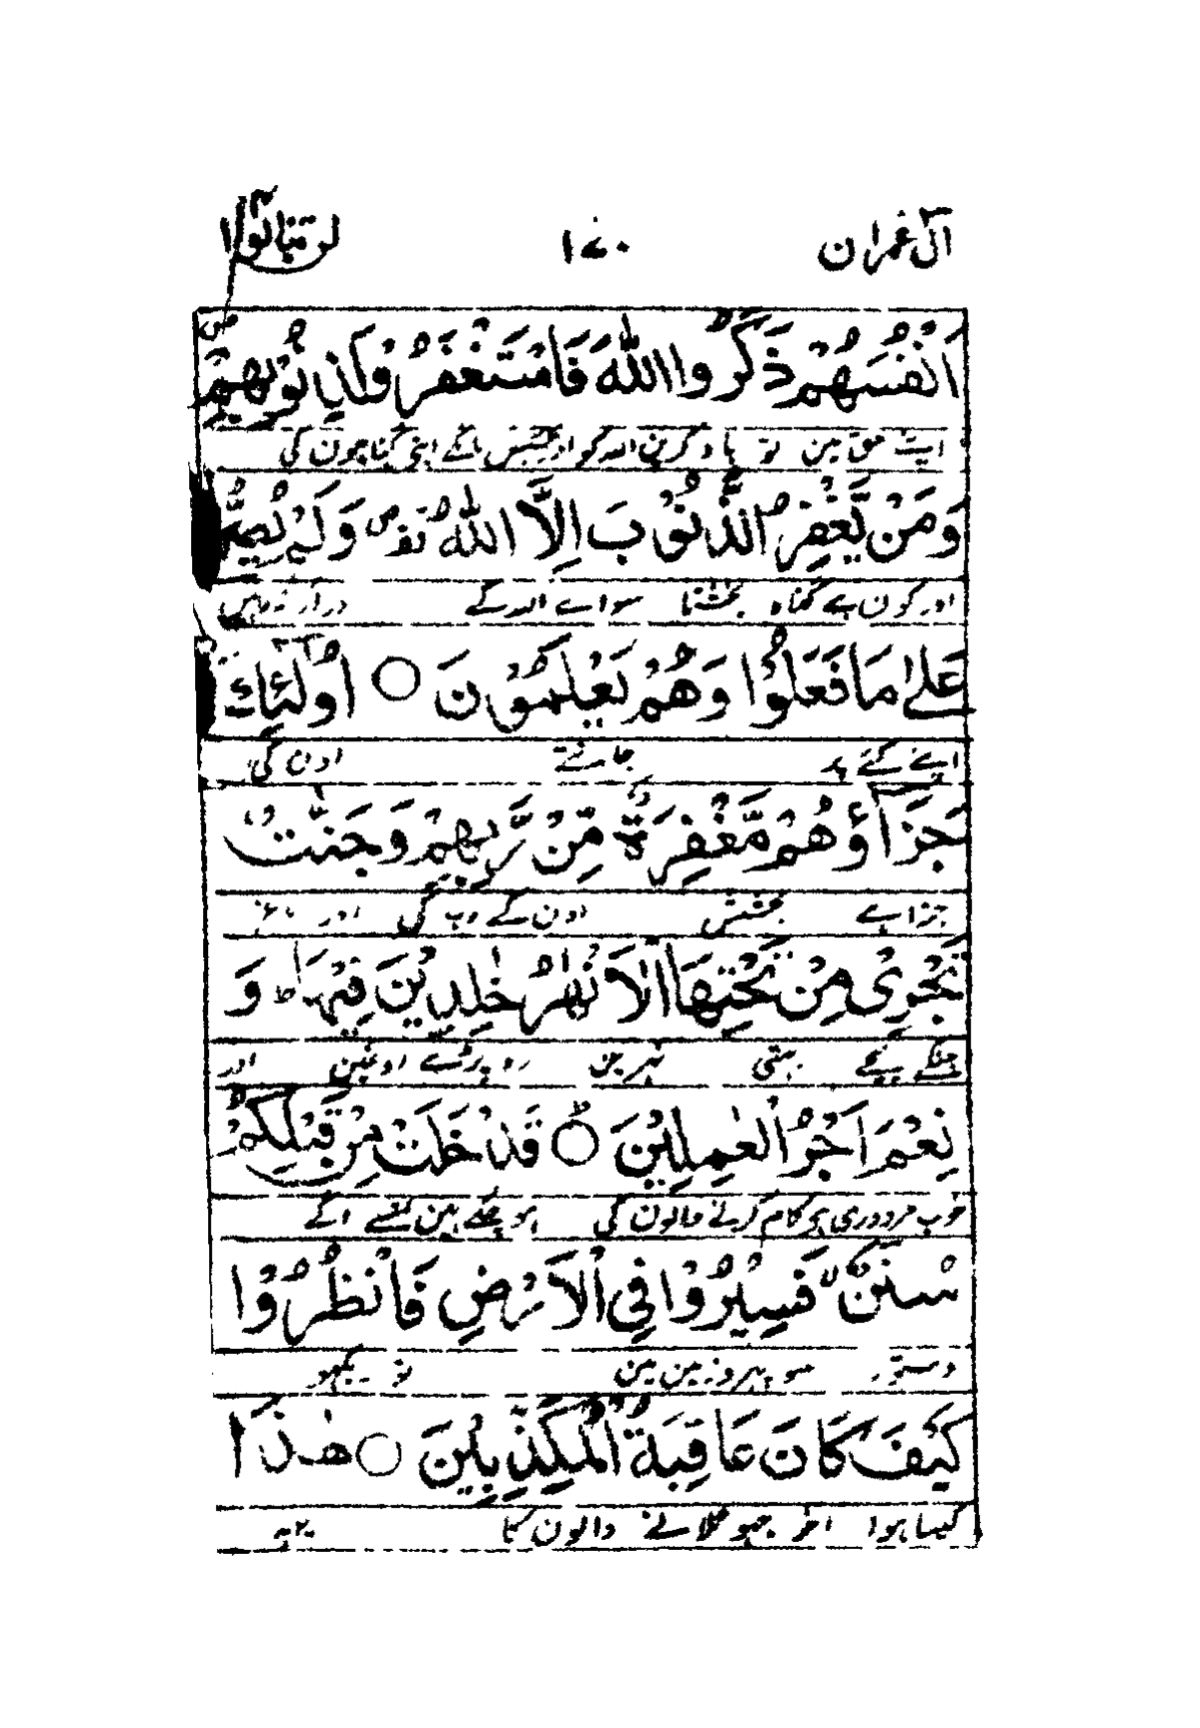 آل عمران ١٧٠ لن تنالوا ٤
اَنْفُسَهُمْ ذَكَرُوا اللّٰهَ فَاسْتَغْفَرُوْا لِذُنُوْبِهِمْ ص
اپنے حق مین تو یاد کرین اللہ کو اور بخشش مانگے اپنی گناہون کی
وَمَنْ يَّغْفِرُ الذُّنُوْبَ اِلَّا اللّٰهُ ص وَلَمْ يُصِرُّ
اور کون ہے گناہ بخشتا سواے اللہ کے
عَلٰى مَا فَعَلُوْا وَهُمْ يَعْلَمُوْنَ ○ اُولٰٓئِكَ
اپنے کئے پر جانتے اون کی
جَزَآؤُهُمْ مَّغْفِرَةٌ مِّنْ رَّبِّهِمْ وَجَنّٰتٌ
جزا ہے بخشش اون کے رب کی اور باغ
تَجْرِيْ مِنْ تَحْتِهَا الْاَنْهٰرُ خٰلِدِيْنَ فِيْهَا ط وَ
جنکے نیچے بہتی نہرین رہ پڑے اونمین اور
نِعْمَ اَجْرُ الْعٰمِلِيْنَ ○ ط قَدْ خَلَتْ مِنْ قَبْلِكُمْ
خوب مزدوری ہو کام کرنے والون کی ہو چکے ہین تمسے آگے
سُنَنٌ لا فَسِيْرُوْا فِي الْاَرْضِ فَانْظُرُوْا
دستور سو پھرو زمین مین تو دیکھو
كَيْفَ كَانَ عَاقِبَةُ الْمُكَذِّبِيْنَ ○ هٰذَا
کیسا ہوا آخر جھوٹلانے والون کا یہ